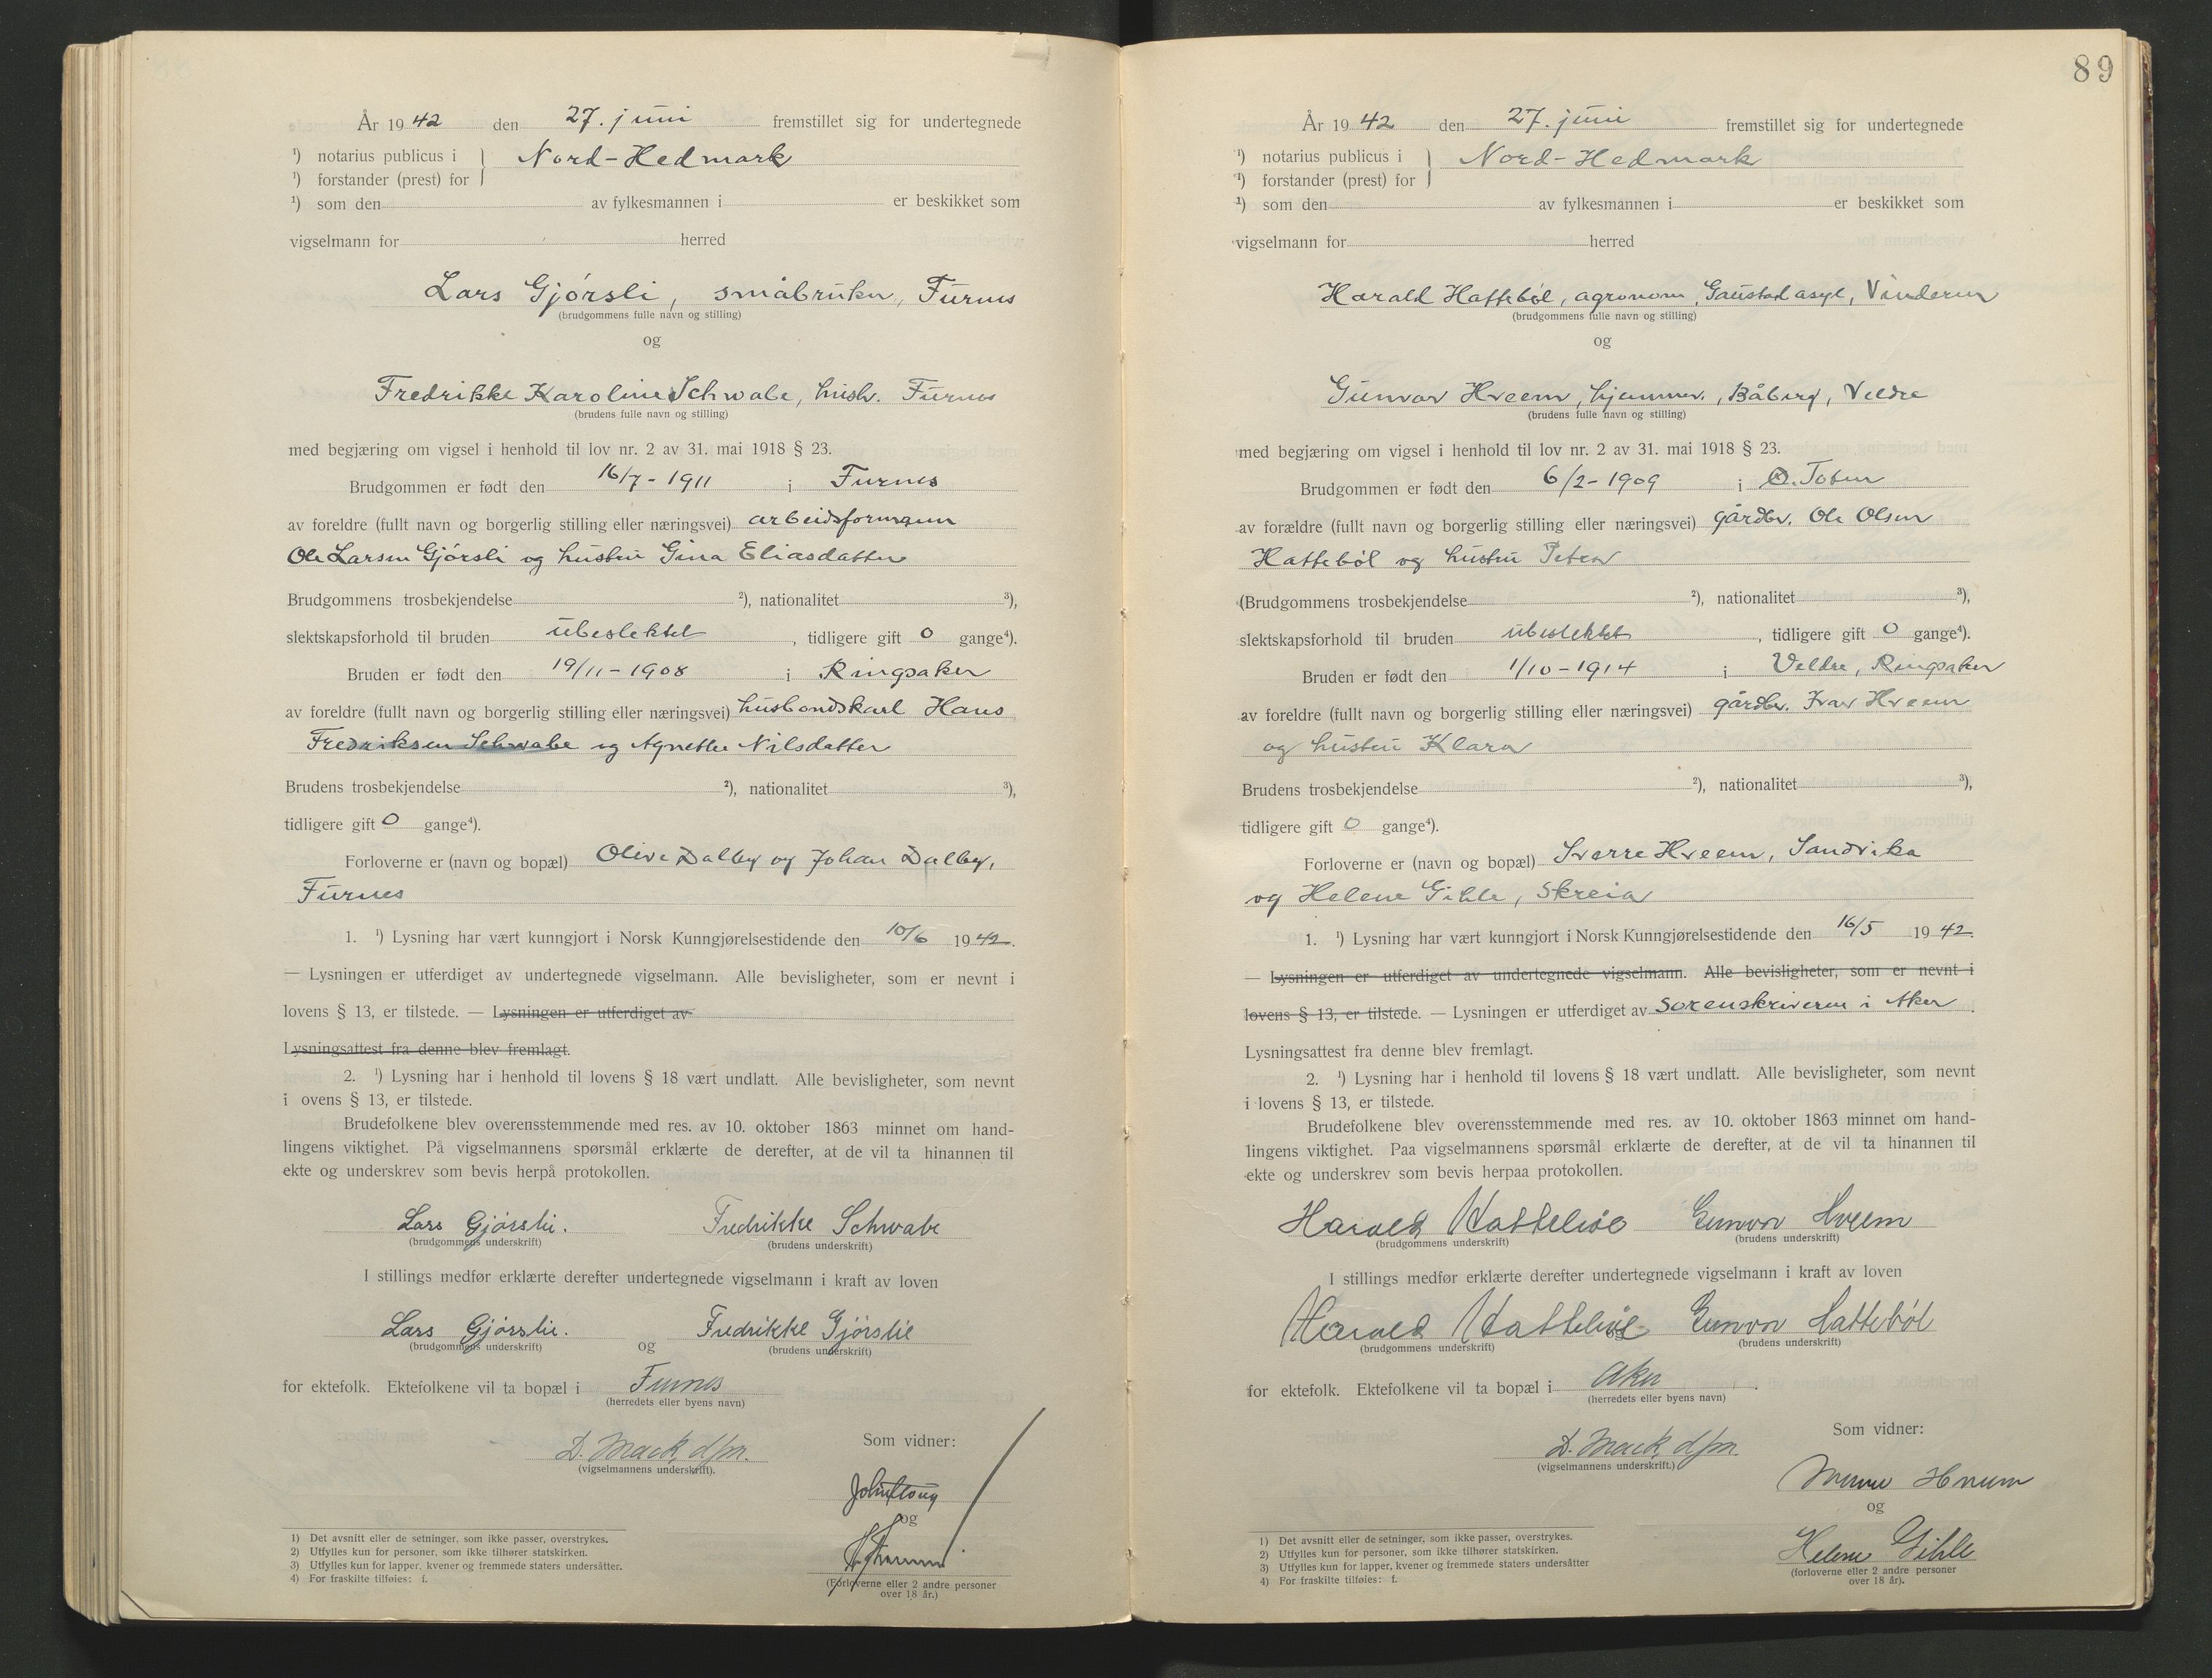 År 1942 den 27. juni fremstillet sig for undertegnede
¹) notarius publicus i } Nord-Hedmark
¹) forstander (prest) for
¹) som den av fylkesmannen i er beskikket som
vigselmann for herred
Lars Gjørsli, småbruker, Furnes
(brudgommens fulle navn og stilling)
og
Fredrikke Karoline Schwabe, hush. Furnes
(brudens fulle navn og stilling)
med begjæring om vigsel i henhold til lov nr. 2 av 31. mai 1918 § 23.
Brudgommen er født den 16/7 - 1911 i Furnes
av foreldre (fullt navn og borgerlig stilling eller næringsvei) arbeidsformann
Ole Larsen Gjørsli og hustru Gina Eliasdatter
Brudgommens trosbekjendelse ²), nationalitet ³),
slektskapsforhold til bruden ubeslektet, tidligere gift 0 gange⁴).
Bruden er født den 19/11 - 1908 i Ringsaker
av foreldre (fullt navn og borgerlig stilling eller næringsvei) husbondskarl Hans
Fredriksen Schwabe og Agnethe Nilsdatter
Brudens trosbekjendelse ²), nationalitet ³),
tidligere gift 0 gange⁴).
Forloverne er (navn og bopæl) Olive Dalby og Johan Dalby,
Furnes
1. ¹) Lysning har vært kunngjort i Norsk Kunngjørelsestidende den 10/6 1942.
— Lysningen er utferdiget av undertegnede vigselmann. Alle bevisligheter, som er nevnt i
lovens § 13, er tilstede. — Lysningen er utferdiget av
Lysningsattest fra denne blev fremlagt.
2. ¹) Lysning har i henhold til lovens § 18 vært undlatt. Alle bevisligheter, som nevnt
i ovens § 13, er tilstede.
Brudefolkene blev overensstemmende med res. av 10. oktober 1863 minnet om hand-
lingens viktighet. På vigselmannens spørsmål erklærte de derefter, at de vil ta hinannen til
ekte og underskrev som bevis herpå protokollen.
Lars Gjørslie. Fredrikke Schwabe
(brudgommens underskrift) (brudens underskrift)
I stillings medfør erklærte derefter undertegnede vigselmann i kraft av loven
Lars Gjørslie. og Fredrikke Gjørslie
(brudgommens underskrift) (brudens underskrift)
for ektefolk. Ektefolkene vil ta bopæl i Furnes
(herredets eller byens navn)
D. Mack, dfm.
(vigselmannens underskrift).
Som vidner:
og
(Forloverne eller 2 andre personer
over 18 år.)
1) Det avsnitt eller de setninger, som ikke passer, overstrykes.
2) Utfylles kun for personer, som ikke tilhører statskirken.
3) Utfylles kun for lapper, kvener og fremmede staters undersåtter.
4) For fraskilte tilføies: f.
89
År 1942 den 27. juni fremstillet sig for undertegnede
¹) notarius publicus i } Nord-Hedmark
¹) forstander (prest) for
¹) som den av fylkesmannen i er beskikket som
vigselmann for herred
Harald Hattebøl, agronom, Gaustad asyl, Vinderen
(brudgommens fulle navn og stilling)
og
Gunvor Hveem, hjemmev., Båberg, Veldre
(brudens fulle navn og stilling)
med begjæring om vigsel i henhold til lov nr. 2 av 31. mai 1918 § 23.
Brudgommen er født den 6/2 - 1909 i Ø. Toten
av forældre (fullt navn og borgerlig stilling eller næringsvei) gårdbr. Ole Olsen
Hattebøl og hustru Petra
(Brudgommens trosbekjendelse ²), nationalitet ³),
slektskapsforhold til bruden ubeslektet, tidligere gift 0 gange⁴).
Bruden er født den 1/10 - 1914 i Veldre, Ringsaker
av foreldre (fullt navn og borgerlig stilling eller næringsvei) gårdbr. Ivar Hveem
og hustru Klara
Brudens trosbekjendelse ²), nationalitet ³),
tidligere gift 0 gange⁴).
Forloverne er (navn og bopæl) Sverre Hveem, Sandvika
og Helene Gihle, Skreia
1. ¹) Lysning har vært kunngjort i Norsk Kunngjørelsestidende den 16/5 1942.
— Lysningen er utferdiget av undertegnede vigselmann. Alle bevisligheter, som er nevnt i
lovens § 13, er tilstede. — Lysningen er utferdiget av sorenskriveren i Aker.
Lysningsattest fra denne blev fremlagt.
2. ¹) Lysning har i henhold til lovens § 18 vært undlatt. Alle bevisligheter, som nevnt
i lovens § 13, er tilstede.
Brudefolkene blev overensstemmende med res. av 10. oktober 1863 minnet om hand-
lingens viktighet. Paa vigselmannens spørsmål erklærte de derefter, at de vil ta hinannen til
ekte og underskrev som bevis herpaa protokollen.
Harald Hattebøl Gunvor Hveem
(brudgommens underskrift) (brudens underskrift)
I stillings medfør erklærte derefter undertegnede vigselmann i kraft av loven
Harald Hattebøl og Gunvor Hattebøl
(brudgommens underskrift) (brudens underskrift)
for ektefolk. Ektefolkene vil ta bopæl i Aker.
(herredets eller byens navn)
D. Mack, dfm.
(vigselmannens underskrift.)
Som vidner:
Hveem
og
Helene Gihle
(forloverne eller 2 andre personer
over 18 år).
1) Det avsnitt eller de setninger, som ikke passer, overstrykes.
2) Utfylles kun for personer, som ikke tilhører statskirken.
3) Utfylles kun for lapper, kvener og fremmede staters undersåtter
4) For fraskilte tilføies: f.